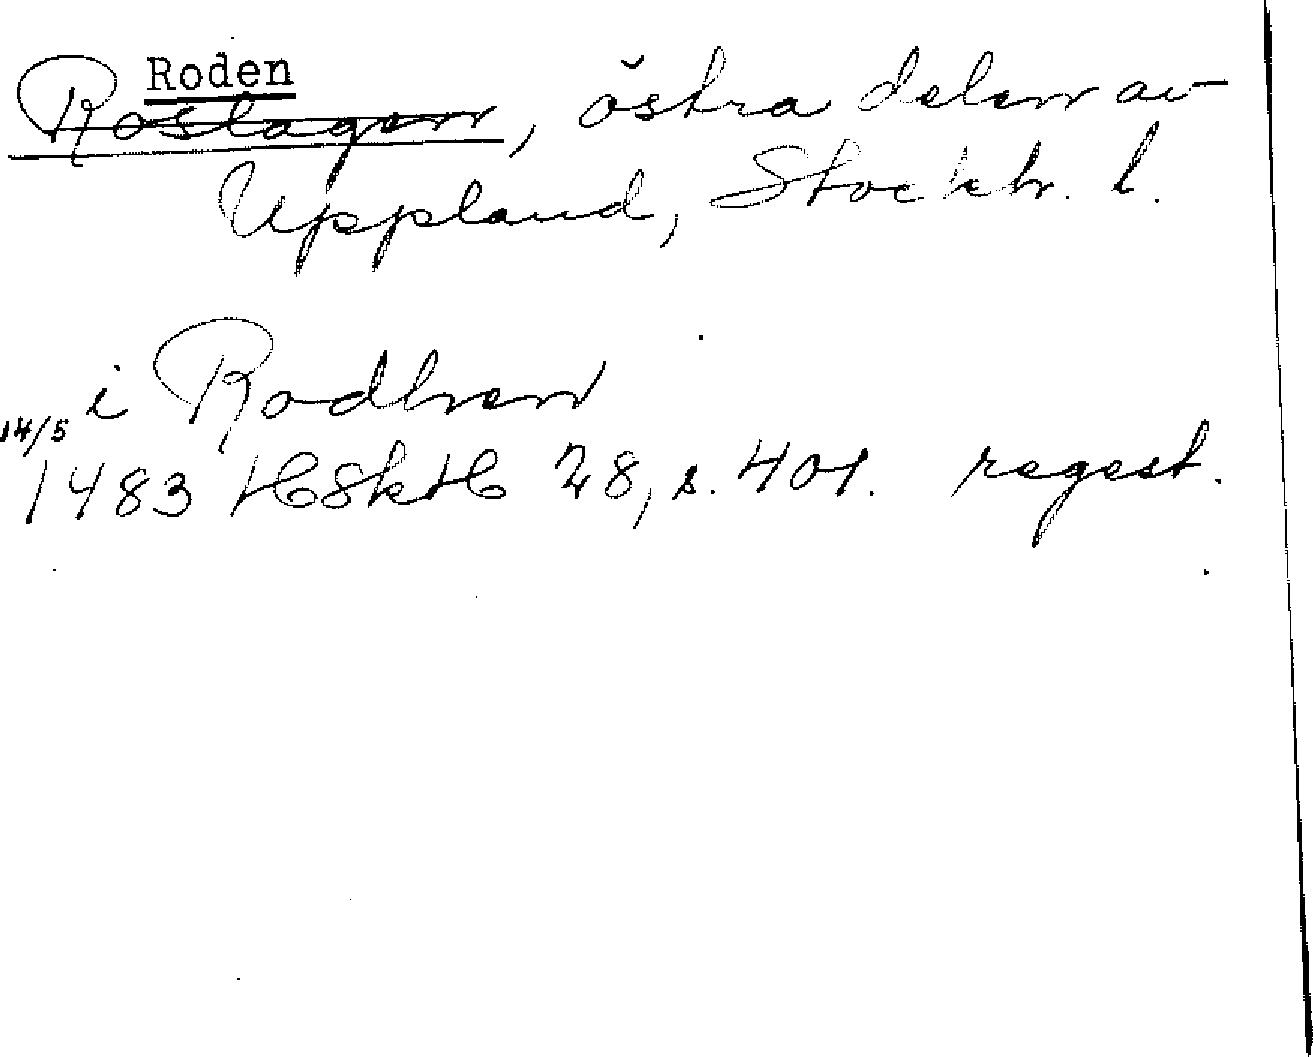 Roden
Roslagen, östra delen av
Uppland, Stockh. l.
i Rodhen
14/5
1483 HSkH 28, s. 401. regest.